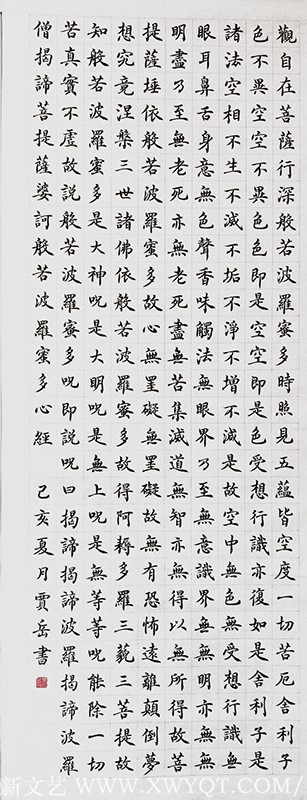 觀自在菩薩行深般若波羅蜜多時照見五蘊皆空度一切苦厄舍利子
色不異空空不異色色即是空空即是色受想行識亦復如是舍利子是
諸法空相不生不滅不垢不淨不增不減是故空中無色無受想行識無
眼耳鼻舌身意無色聲香味觸法無眼界乃至無意識界無無明亦無無
明盡乃至無老死亦無老死盡無苦集滅道無智亦無得以無所得故菩
提薩埵依般若波羅蜜多故心無罣礙無罣礙故無有恐怖遠離顛倒夢
想究竟涅槃三世諸佛依般若波羅蜜多故得阿耨多羅三藐三菩提故
知般若波羅蜜多是大神呪是大明呪是無上呪是無等等呪能除一切
苦真實不虛故說般若波羅蜜多呪即說呪曰揭諦揭諦波羅揭諦波羅
僧揭諦菩提薩婆訶般若波羅蜜多心經 己亥夏月賈岳書
新文艺 WWW.XWYQT.COM